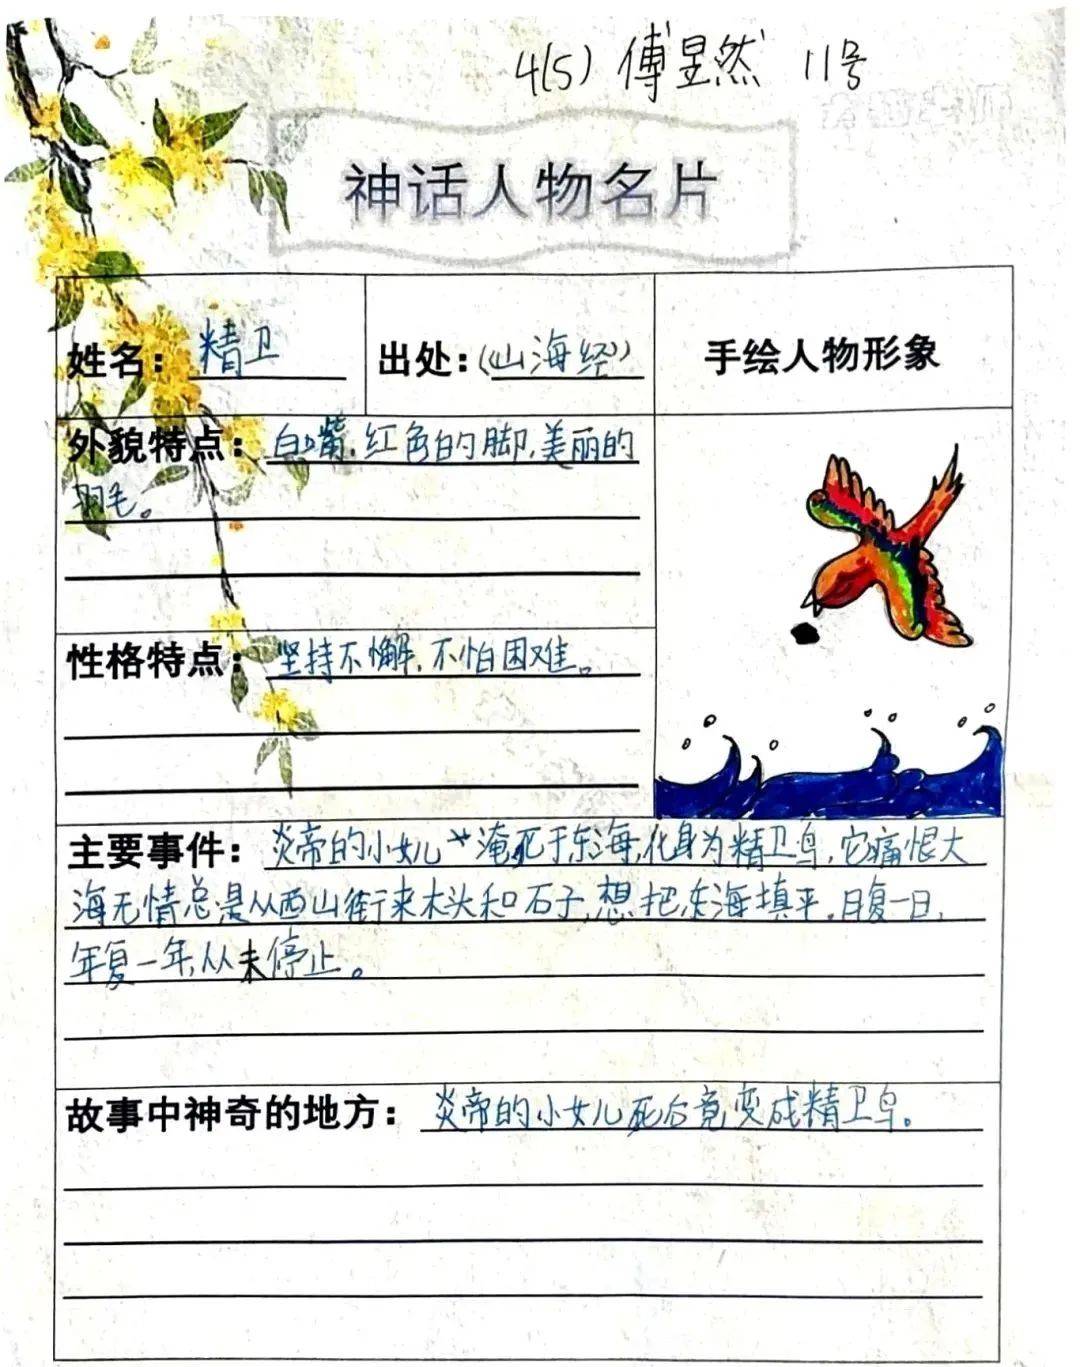 4(5) 傅昱然 11号
神话人物名片
姓名：精卫
出处：《山海经》
手绘人物形象
外貌特点：白嘴，红色的脚，美丽的
羽毛。
性格特点：坚持不懈，不怕困难。
主要事件：炎帝的小女儿淹死于东海，化身为精卫鸟，它痛恨大
海无情总是从西山衔来木头和石子，想把东海填平。日复一日，
年复一年，从未停止。
故事中神奇的地方：炎帝的小女儿死后竟变成精卫鸟。